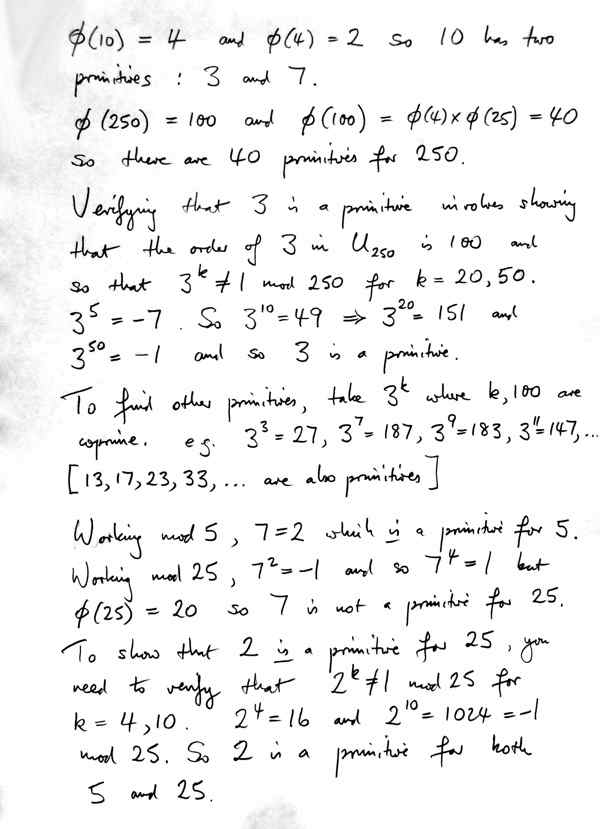 ϕ(10) = 4 and ϕ(4) = 2 so 10 has two
primitives : 3 and 7.
ϕ(250) = 100 and ϕ(100) = ϕ(4)×ϕ(25) = 40
so there are 40 primitives for 250.
Verifying that 3 is a primitive involves showing
that the order of 3 in U₂₅₀ is 100 and
so that 3ᵏ ≠ 1 mod 250 for k = 20, 50.
3⁵ = -7. So 3¹⁰ = 49 ⇒ 3²⁰ = 151 and
3⁵⁰ = -1 and so 3 is a primitive.
To find other primitives, take 3ᵏ where k, 100 are
coprime. eg. 3³ = 27, 3⁷ = 187, 3⁹ = 183, 3¹¹ = 147, ...
[13, 17, 23, 33, ... are also primitives]
Working mod 5, 7 = 2 which is a primitive for 5.
Working mod 25, 7² = -1 and so 7⁴ = 1 but
ϕ(25) = 20 so 7 is not a primitive for 25.
To show that 2 is a primitive for 25, you
need to verify that 2ᵏ ≠ 1 mod 25 for
k = 4, 10. 2⁴ = 16 and 2¹⁰ = 1024 = -1
mod 25. So 2 is a primitive for both
5 and 25.